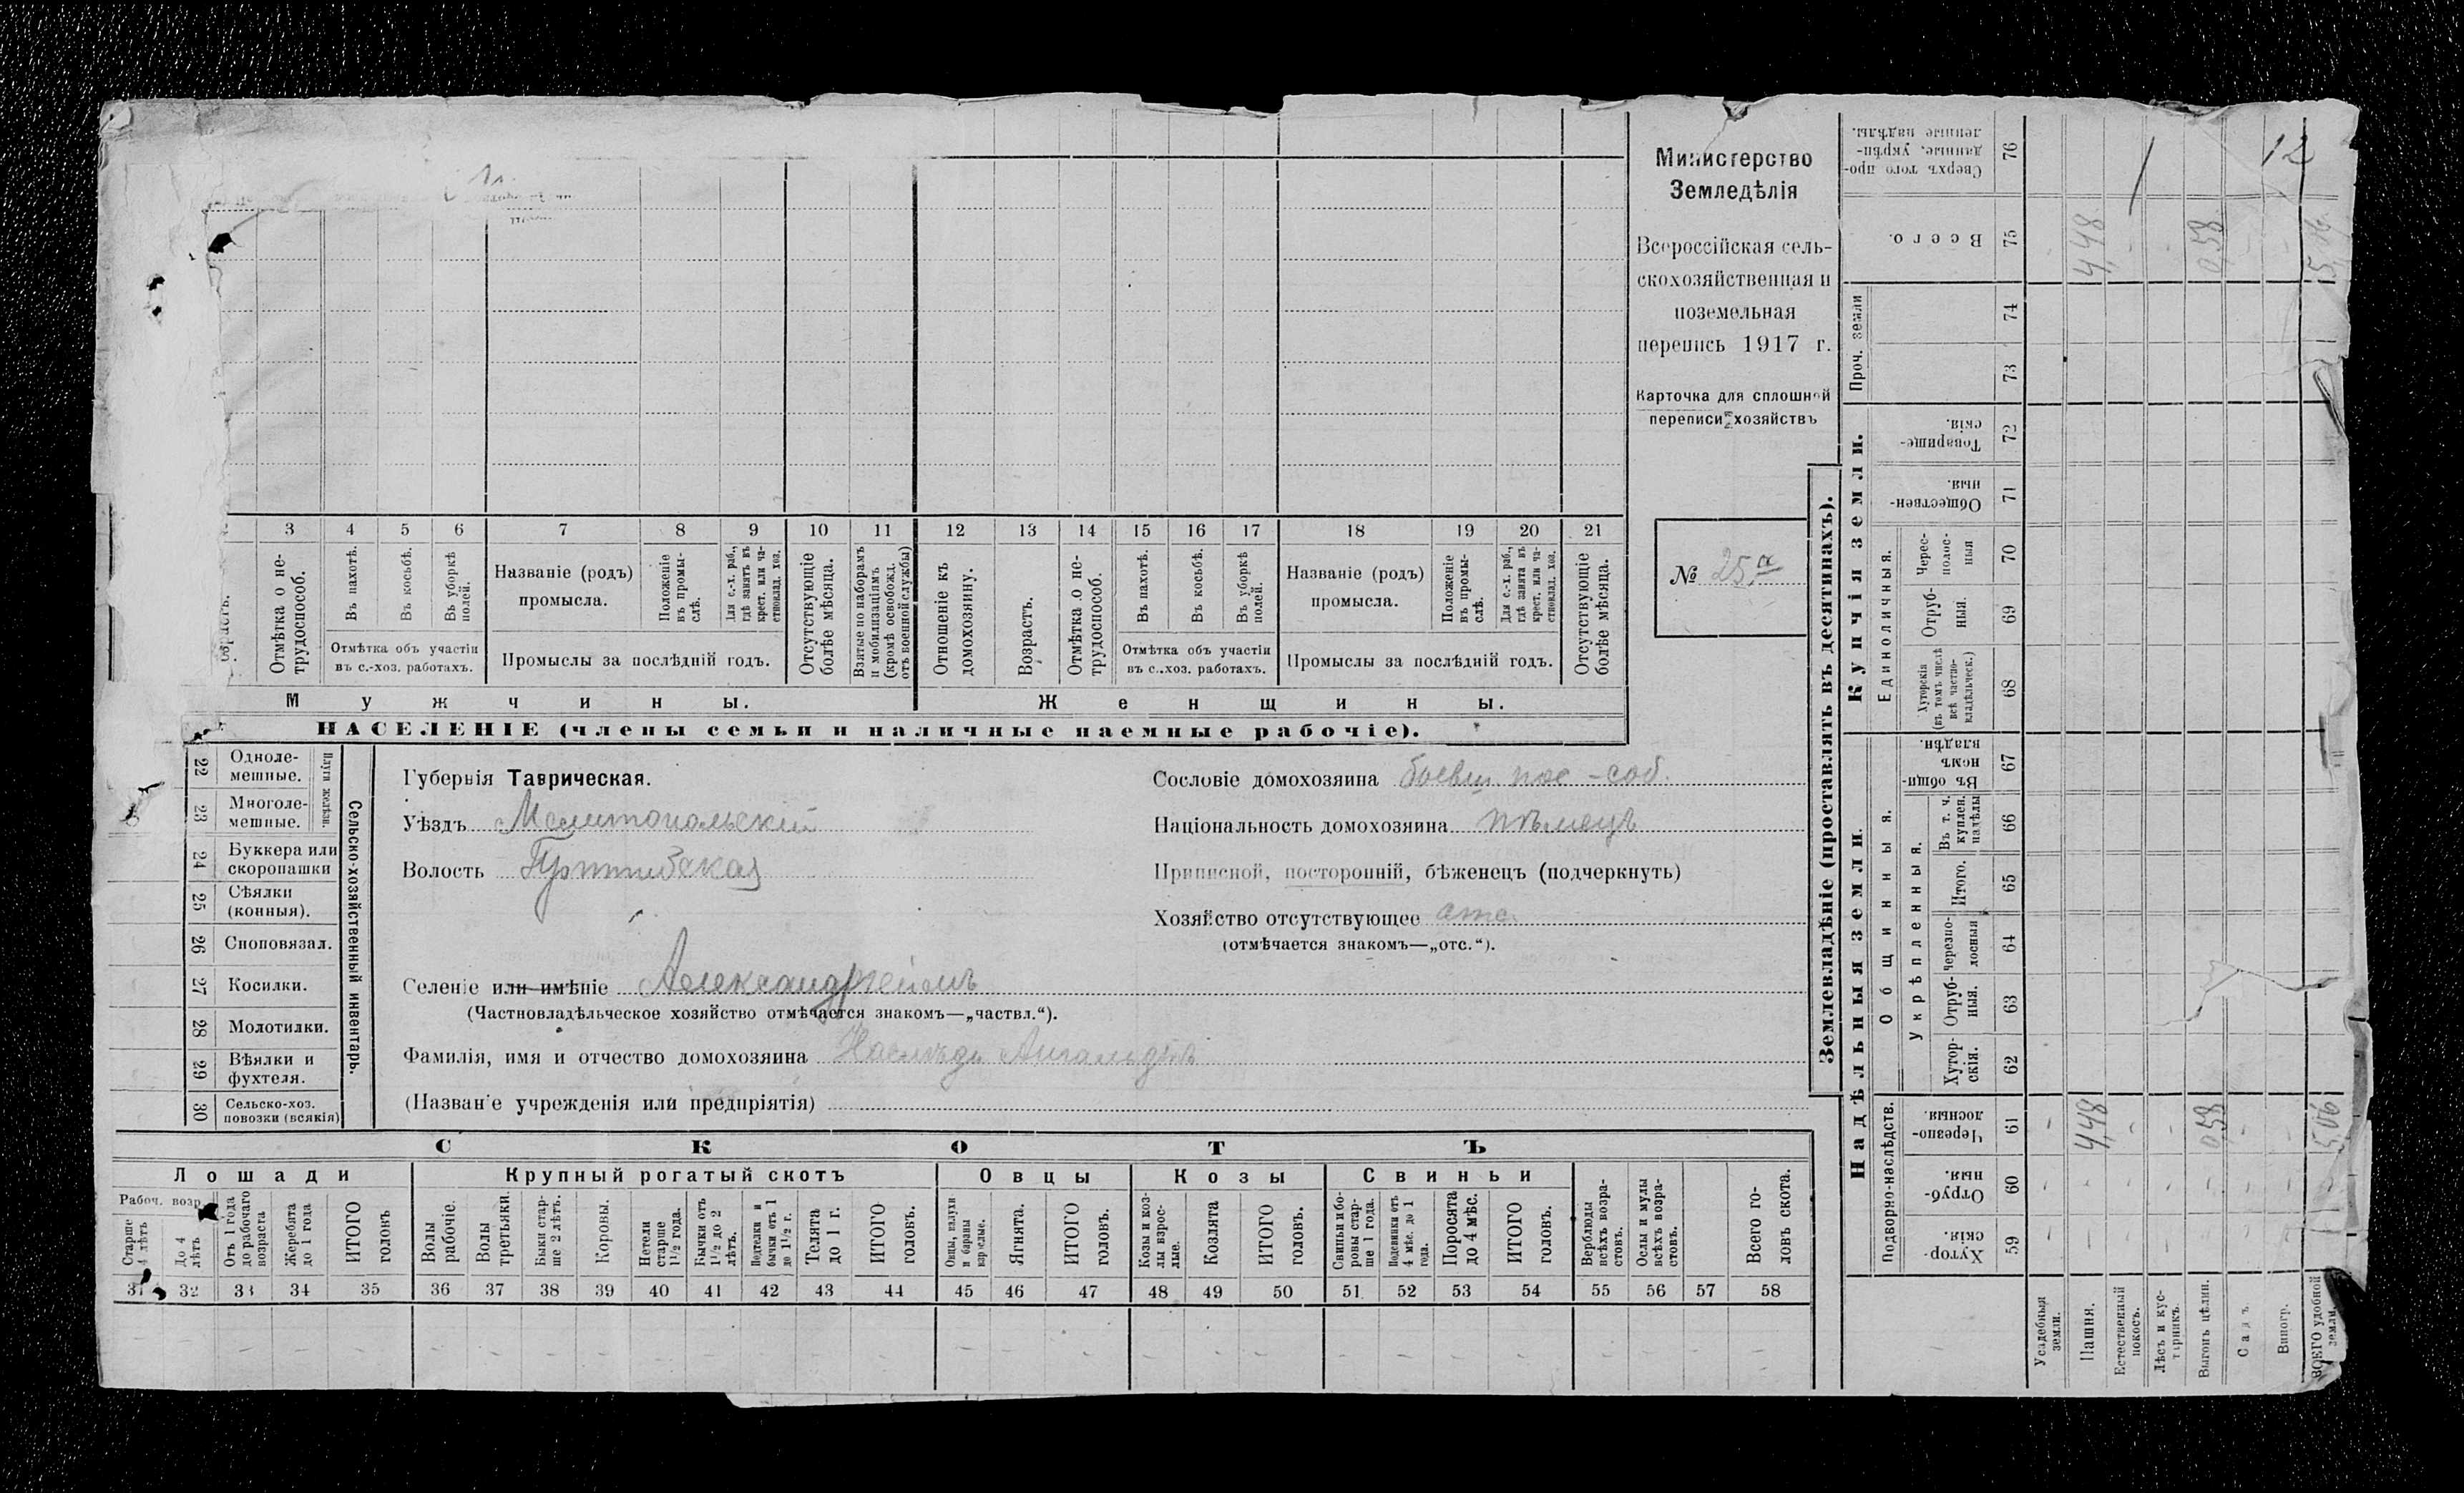 Министерство
Земледѣлія
Всероссійская сель-
скохозяйственная и
поземельная
перепись 1917 г.
Карточка для сплошной
переписи хозяйствъ
№ 25а
3 4 5 6 7 8 9 10 11 12 13 14 15 16 17 18 19 20 21
Отмѣтка о не-
трудоспособ.
Въ пахотѣ.
Въ косьбѣ.
Въ уборкѣ
полей.
Отмѣтка объ участіи
въ с.-хоз. работахъ.
Названіе (родъ)
промысла.
Положеніе
въ промы-
слѣ.
Для с.-х. раб.,
гдѣ занятъ въ
крест. или ча-
стновлад. хоз.
Промыслы за послѣдній годъ.
Отсутствующіе
болѣе мѣсяца.
Взятые по наборамъ
и мобилизаціямъ
(кромѣ освобожд.
отъ военной службы)
Отношеніе къ
домохозяину.
Возрастъ.
Отмѣтка о не-
трудоспособ.
Въ пахотѣ.
Въ косьбѣ.
Въ уборкѣ
полей.
Отмѣтка объ участіи
въ с.-хоз. работахъ.
Названіе (родъ)
промысла.
Положеніе
въ промы-
слѣ.
Для с.-х. раб.,
гдѣ занята въ
крест. или ча-
стновлад. хоз.
Промыслы за послѣдній годъ.
Отсутствующіе
болѣе мѣсяца.
Мужчины.
Женщины.
НАСЕЛЕНІЕ (члены семьи и наличные наемные рабочіе).
22 Одноле-
мешные.
23 Многоле-
мешные.
Плуги желѣзн.
24 Буккера или
скоропашки
25 Сѣялки
(конныя).
26 Сноповязал.
27 Косилки.
28 Молотилки.
29 Вѣялки и
фухтеля.
30 Сельско-хоз.
повозки (всякія)
Сельско-хозяйственный инвентарь.
Губернія Таврическая.
Уѣздъ Мелитопольскій
Волость
Сословіе домохозяина
Національность домохозяина нѣмецъ
Приписной, посторонній, бѣженецъ (подчеркнуть)
Хозяйство отсутствующее отс.
(отмѣчается знакомъ—„отс.“).
Селеніе или имѣніе Александргеймъ
(Частновладѣльческое хозяйство отмѣчается знакомъ—„частвл.“).
Фамилія, имя и отчество домохозяина
(Названіе учрежденія или предпріятія)
СКОТЪ
Лошади
Крупный рогатый скотъ
Овцы
Козы
Свиньи
Рабоч. возр.
Старше
4 лѣтъ
До 4
лѣтъ
Отъ 1 года
до рабочаго
возраста
Жеребята
до 1 года
ИТОГО
головъ
Волы
рабочіе.
Волы
третьяки.
Быки стар-
ше 2 лѣтъ.
Коровы.
Нетели
старше
1½ года.
Бычки отъ
1½ до 2
лѣтъ.
Подтелки и
бычки отъ 1
до 1½ г.
Телята
до 1 г.
ИТОГО
головъ.
Овцы, валухи
и бараны
взрослые.
Ягнята.
ИТОГО
головъ.
Козы и коз-
лы взрос-
лые.
Козлята
ИТОГО
головъ.
Свиньи и бо-
ровы стар-
ше 1 года.
Подсвинки отъ
4 мѣс. до 1
года.
Поросята
до 4 мѣс.
ИТОГО
головъ.
Верблюды
всѣхъ возра-
стовъ.
Ослы и мулы
всѣхъ возра-
стовъ.
Всего го-
ловъ скота.
31 32 33 34 35 36 37 38 39 40 41 42 43 44 45 46 47 48 49 50 51 52 53 54 55 56 57 58
Землевладѣніе (проставлять въ десятинахъ).
Купчія земли.
Надѣльныя земли.
Проч. земли
Единоличныя.
Общинныя.
Укрѣпленныя.
Подворно-наслѣдств.
Сверхъ того про-
данные, укрѣп-
ленные надѣлы.
76
12
Всего.
75 4,48 0,58 5,06
74
73
Товарище-
скія.
72
Обществен-
ныя.
71
Черес-
полос-
ныя
70
Отруб-
ныя.
69
Хуторскія
(въ томъ числѣ
всѣ частно-
владѣльческ.)
68
Въ общин-
номъ
владѣн.
67
Въ т. ч.
куплен.
надѣлы
66
Итого.
65
Черезпо-
лосныя
64
Отруб-
ныя.
63
Хутор-
скія.
62
Черезпо-
лосныя.
61 4,48 0,58 5,06
Отруб-
ныя.
60
Хутор-
скія.
59
Усадебныя
земли.
Пашня.
Естественный
покосъ.
Лѣсъ и кус-
тарникъ.
Выгонъ цѣлин.
Садъ.
Виногр.
ВСЕГО удобной
земли.